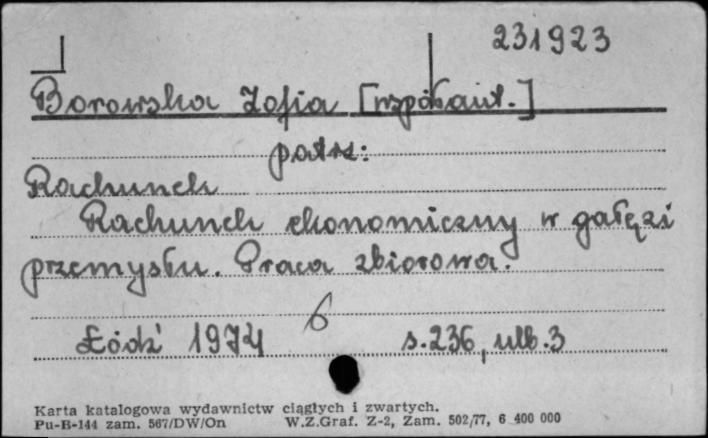 231923
Borowska Zofia [współaut.]
patrz:
Rachunek
Rachunek ekonomiczny w gałęzi
przemysłu. Praca zbiorowa.
6
Łódź 1974 s.236, nlb.3
Karta katalogowa wydawnictw ciągłych i zwartych.
Pu-B-144 zam. 567/DW/On W.Z.Graf. Z-2, Zam. 502/77, 6 400 000